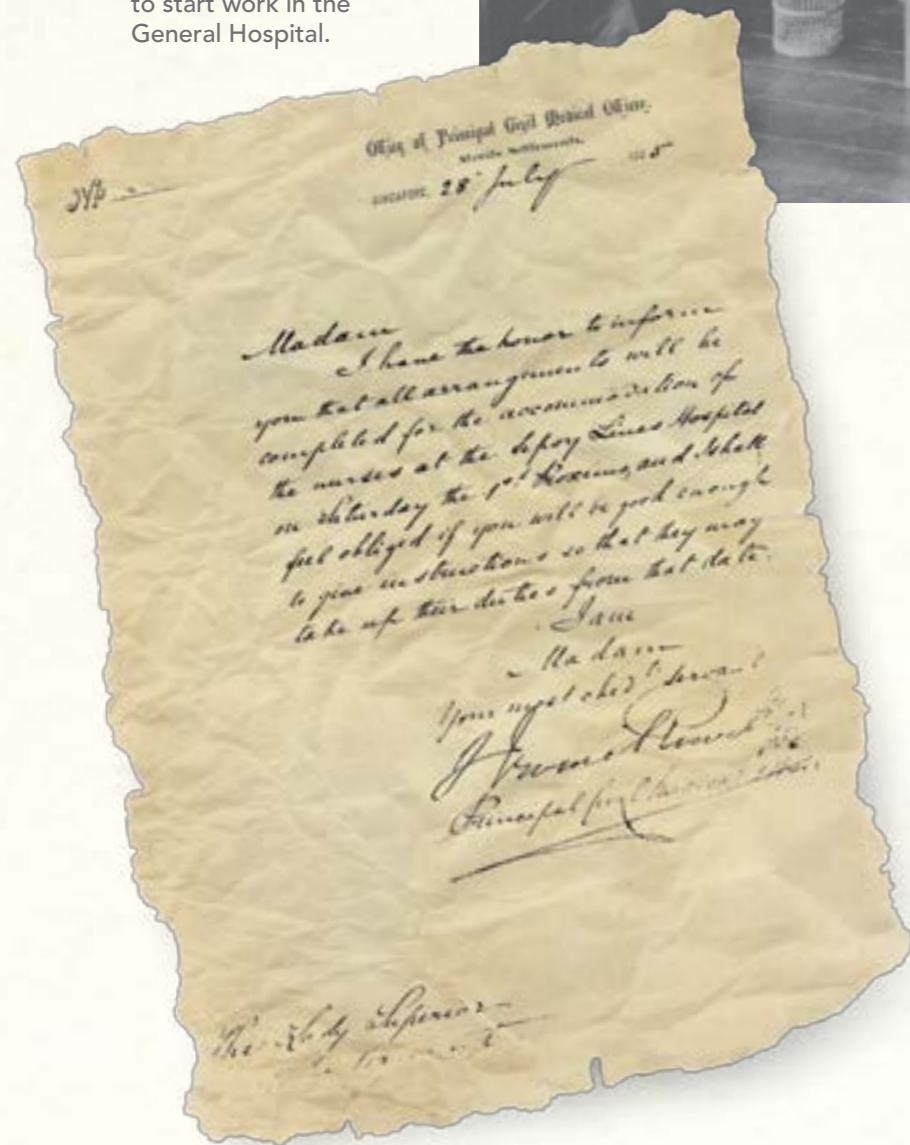 to start work in the
General Hospital.
Office of Principal Civil Medical Officer,
Straits Settlements.
No
SINGAPORE, 28 July 5
Madam
I have the honor to inform
you that all arrangements will be
completed for the accommodation of
the nurses at the Sepoy Lines Hospital
on Saturday the 1st and I shall
feel obliged if you will be good enough
to give instructions so that they may
take up their duties from that date.
I am
Madam
Your most obedt servant
Principal Civil Medical Officer
The Lady Superior